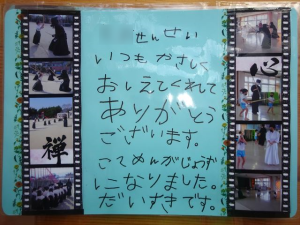 せんせい
いつもやさしく
おしえてくれて
ありがとう
ございます。
こてめんがじょうず
になりました。
だいすきです。
心
禅